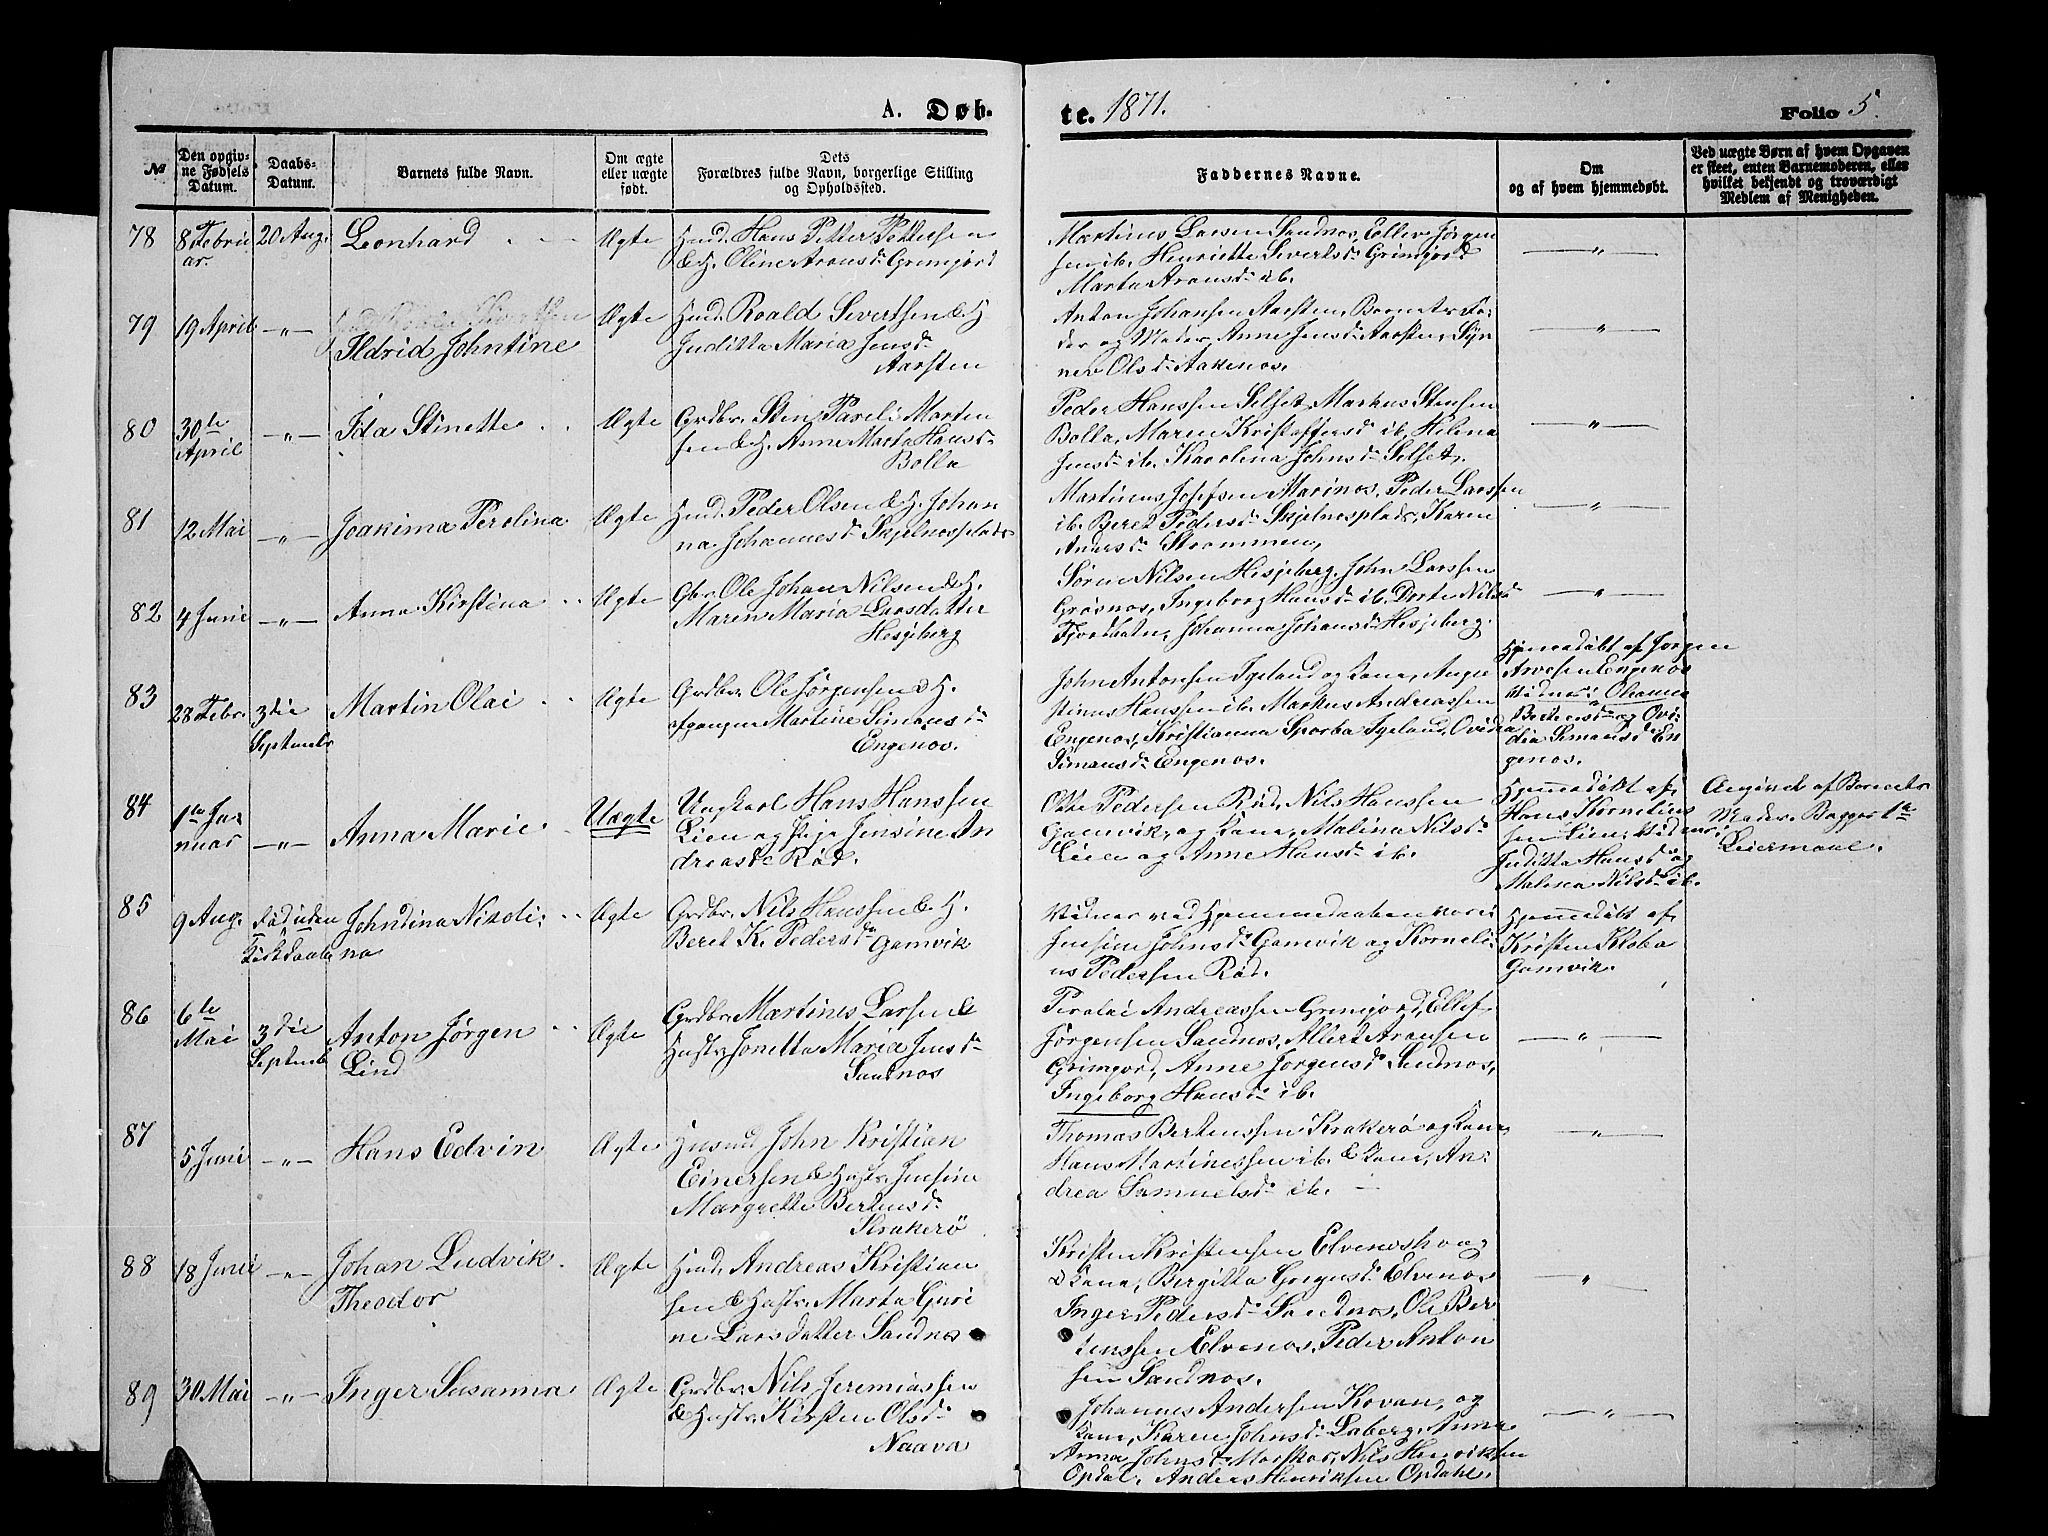 A. Døb-
te. 1871.
Folio 5.
№
Den opgiv-
ne Fødsels
Datum.
Daabs-
Datum.
Barnets fulde Navn.
Om ægte
eller uægte
født.
Dets
Forældres fulde Navn, borgerlige Stilling
og Opholdssted.
Faddernes Navne.
Om
og af hvem hjemmedøbt.
Ved uægte Børn af hvem Opgaven
er skeet, enten Barnemoderen, eller
hvilket bekjendt og troværdigt
Medlem af Menigheden.
78
8 Febru
ar.
20 Aug.
Leonhard
Ægte
Husd. Hans Petter Pettersen
& H. Oline Aronsd. Grimjord
Martinus Larsen Sandnes, Ellev Jørgen
sen ib. Henriette Sivertsd. Grimjord
Marta Aronsd. ib.
— " —
79
19 April
— " —
Ildrid Johntine
Ægte
Husd. Roald Sivertsen & H
Juditta Maria Jensd.
Aarsten
Anton Johansen Aarsten, Barnets Fa-
der og Moder, Anne Jensd. Aarsten,
Olsd. Aakenes.
— " —
80
30te
April
— " —
Ida Stinette
Ægte
Grdbr. Sten Pareli Morten
sen & H. Anne Marta Hansd.
Bolla
Peder Hanssen Selset, Markus Stensen
Bolla, Maren Kristoffersd. ib. Helena
Jensd. ib. Karolina Johnsd. Selset.
— " —
81
12 Mai
— " —
Joakima Perolina
Ægte
Husd. Peder Olsen & H. Johan
na Johannesd. Skjelnesplads
Martinus Josefsen Marines, Peder Larssen
ib. Beret Pedersd. Skjelnesplads, Karen
Andersd. Strømmen,
— " —
82
4 Juni
— " —
Anna Kirstina
Ægte
Gbr. Ole Johan Nilsen & H.
Maren Maria Larsdatter
Hesjeberg
Søren Nilsen Hesjeberg, John Larssen
Grøsnes, Ingeborg Hansd. ib. Dorte Nilsd
Fjordbotn, Johanna Johansd. Hesjeberg.
— " —
83
28 Febr.
3die
Septembr
Martin Olai
Ægte
Grdbr. Ole Jørgensen & H.
afgangne Martine Simonsd.
Engenes.
John Antonsen Igeland og Kone, Augu
stinus Hanssen ib. Markus Andreassen
Engenes, Kristianna Sporbo Igeland, Ovidia
Simonsd. Engenes.
Hjemmedøbt af Jørgen
Arvesen Engenes
Vidner: Oleanna
Bertensd. og Ovi-
dia Simonsd. En
genes.
84
1te Ja-
nuar
— " —
Anna Marie
Uægte
Ungkarl Hans Hanssen
Lien og Pige Jensine An
dreasd. Rød.
Okke Pedersen Rød, Nils Hanssen
Gamvik, og Kone, Malina Nilsd.
Lien og Anne Hansd. ib.
Hjemmedøbt af
Hans Kornelius
sen Lien, Vidner:
Juditta Hansd. og
Malena Nilsd. ib.
Angivet af Barnets
Moder. Begges 1te
Leiermaal.
85
9 Aug.
død uden
Kirkdaab
Johndina Nikoli-
na
Ægte
Grdbr. Nils Hanssen & H.
Beret K. Pedersd. Gamvik
Vidner ved Hjemmedaaben vare:
Jensine Johnsd. Gamvik og Korneli-
us Pedersen Rød.
Hjemmedøbt af
Kristen Kloba
Gamvik.
86
6te
Mai
3die
Septemb
Anton Jørgen
Lind
Ægte
Grdbr. Martines Larsen &
Hustr. Jonetta Maria Jensd.
Sandnes
Perolai Andreassen Grimjord, Ellef
Jørgensen Sandnes, Albert Aronsen
Grimjord, Anne Jørgensd. Sandnes,
Ingeborg Hansd. ib.
— " —
87
5 Juni
— " —
Hans Edvin
Ægte
Husmd. John Kristian
Einersen & Hustr. Jensine
Margrette Bertensd.
Krakerö
Thomas Bertenssen Krakerö og Kone,
Hans Martinessen ib. & Kone, An-
drea Samuelsd. ib. —
— " —
88
18 Juni
— " —
Johan Ludvik
Theodor
Ægte
Husd. Andreas Kristian
sen & Hustr. Marta Guri
ne Larsdatter Sandnes
Kristen Kristensen Elveneshaug
& Kone, Birgitta Gregusd. Elvenes
Inger Pedersd. Sandnes, Ole Ber
tenssen Elvenes, Peder Anton
sen Sandnes.
"
89
30 Mai
— " —
Inger Susanna
Ægte
Grdbr. Nils Jeremiassen
& Hustr. Kirsten Olsd.
Naava
Johannes Andersen Kovan, og
Kone, Karen Johnsd. Laberg, Anne
Anna Johnsd. Nils Henriksen
Opdal, Anders Henriksen Opdahl.
— " —